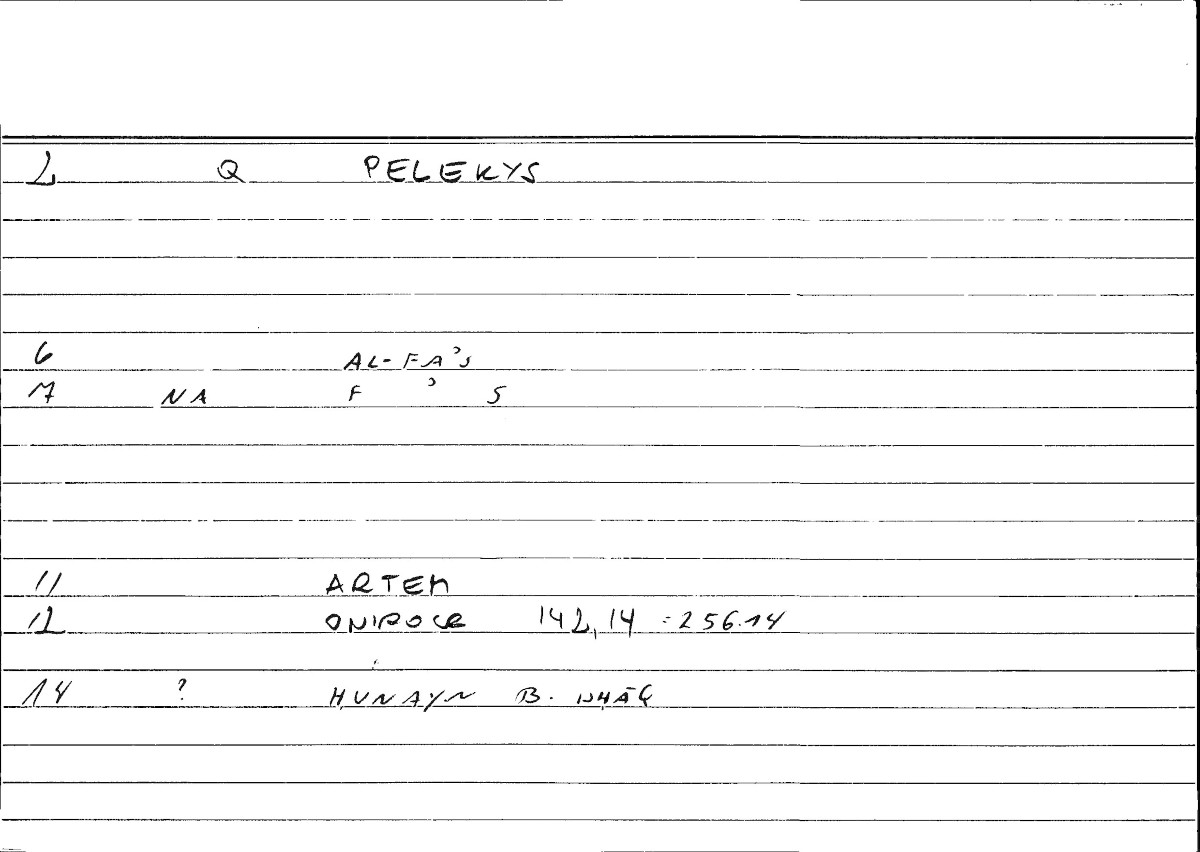 2 Q PELEKYS
6 AL-FA’S
17 NA F ’ S
11 ARTEM
12 ONIROCR 142,14 = 256.14
14 ? ḤUNAYN B. ISḤĀQ